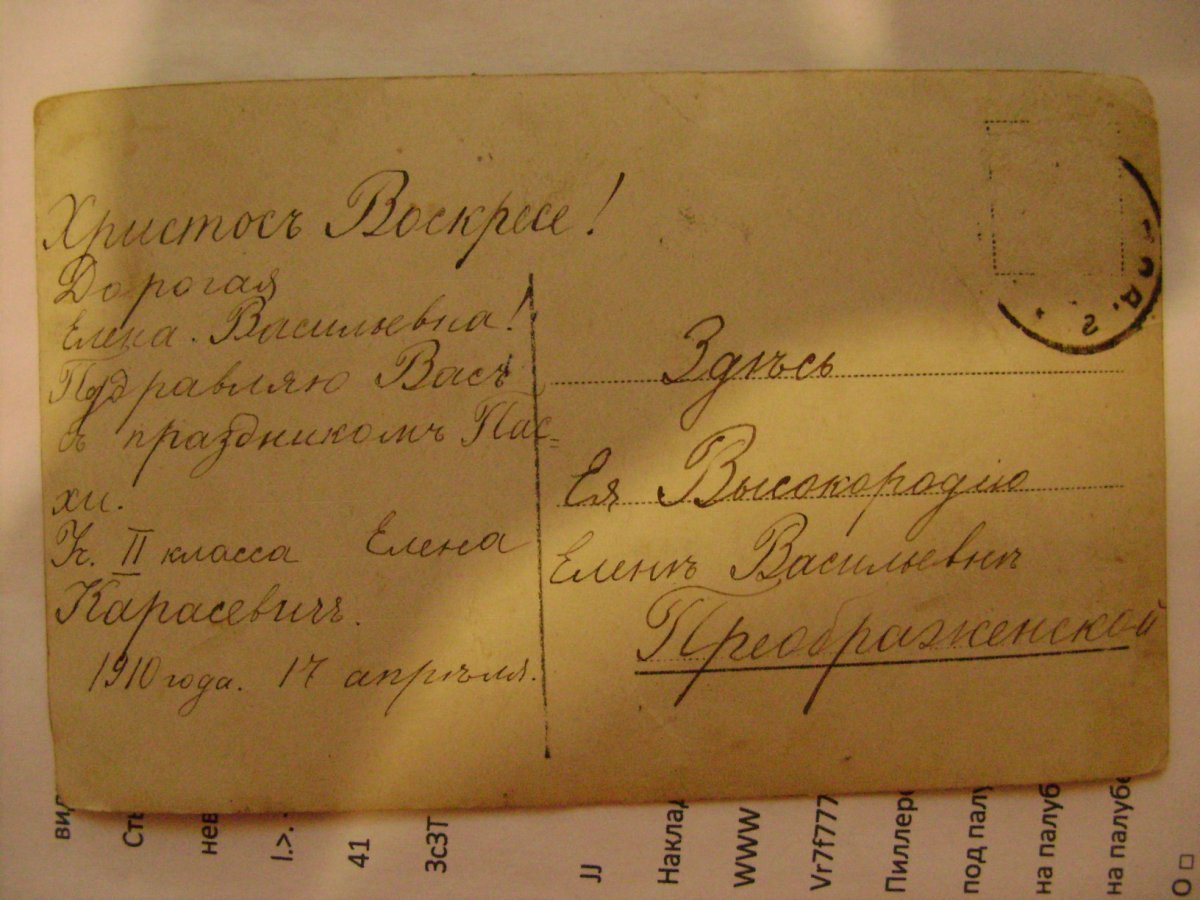 Христосъ Воскресе!
Дорогая
Елена. Васильевна!
Поздравляю Васъ
съ праздникомъ Пас=
хи.
К. II класса Елена
Карасевичъ.
1910 года. 17 апрѣля.
Здѣсь
Ея Высокородію
Еленѣ Васильевнѣ
Преображенской
41
3с3Т
JJ
Наклад
WWW
Vr7f777
Пиллерс
под палу
на палуб
на палубе